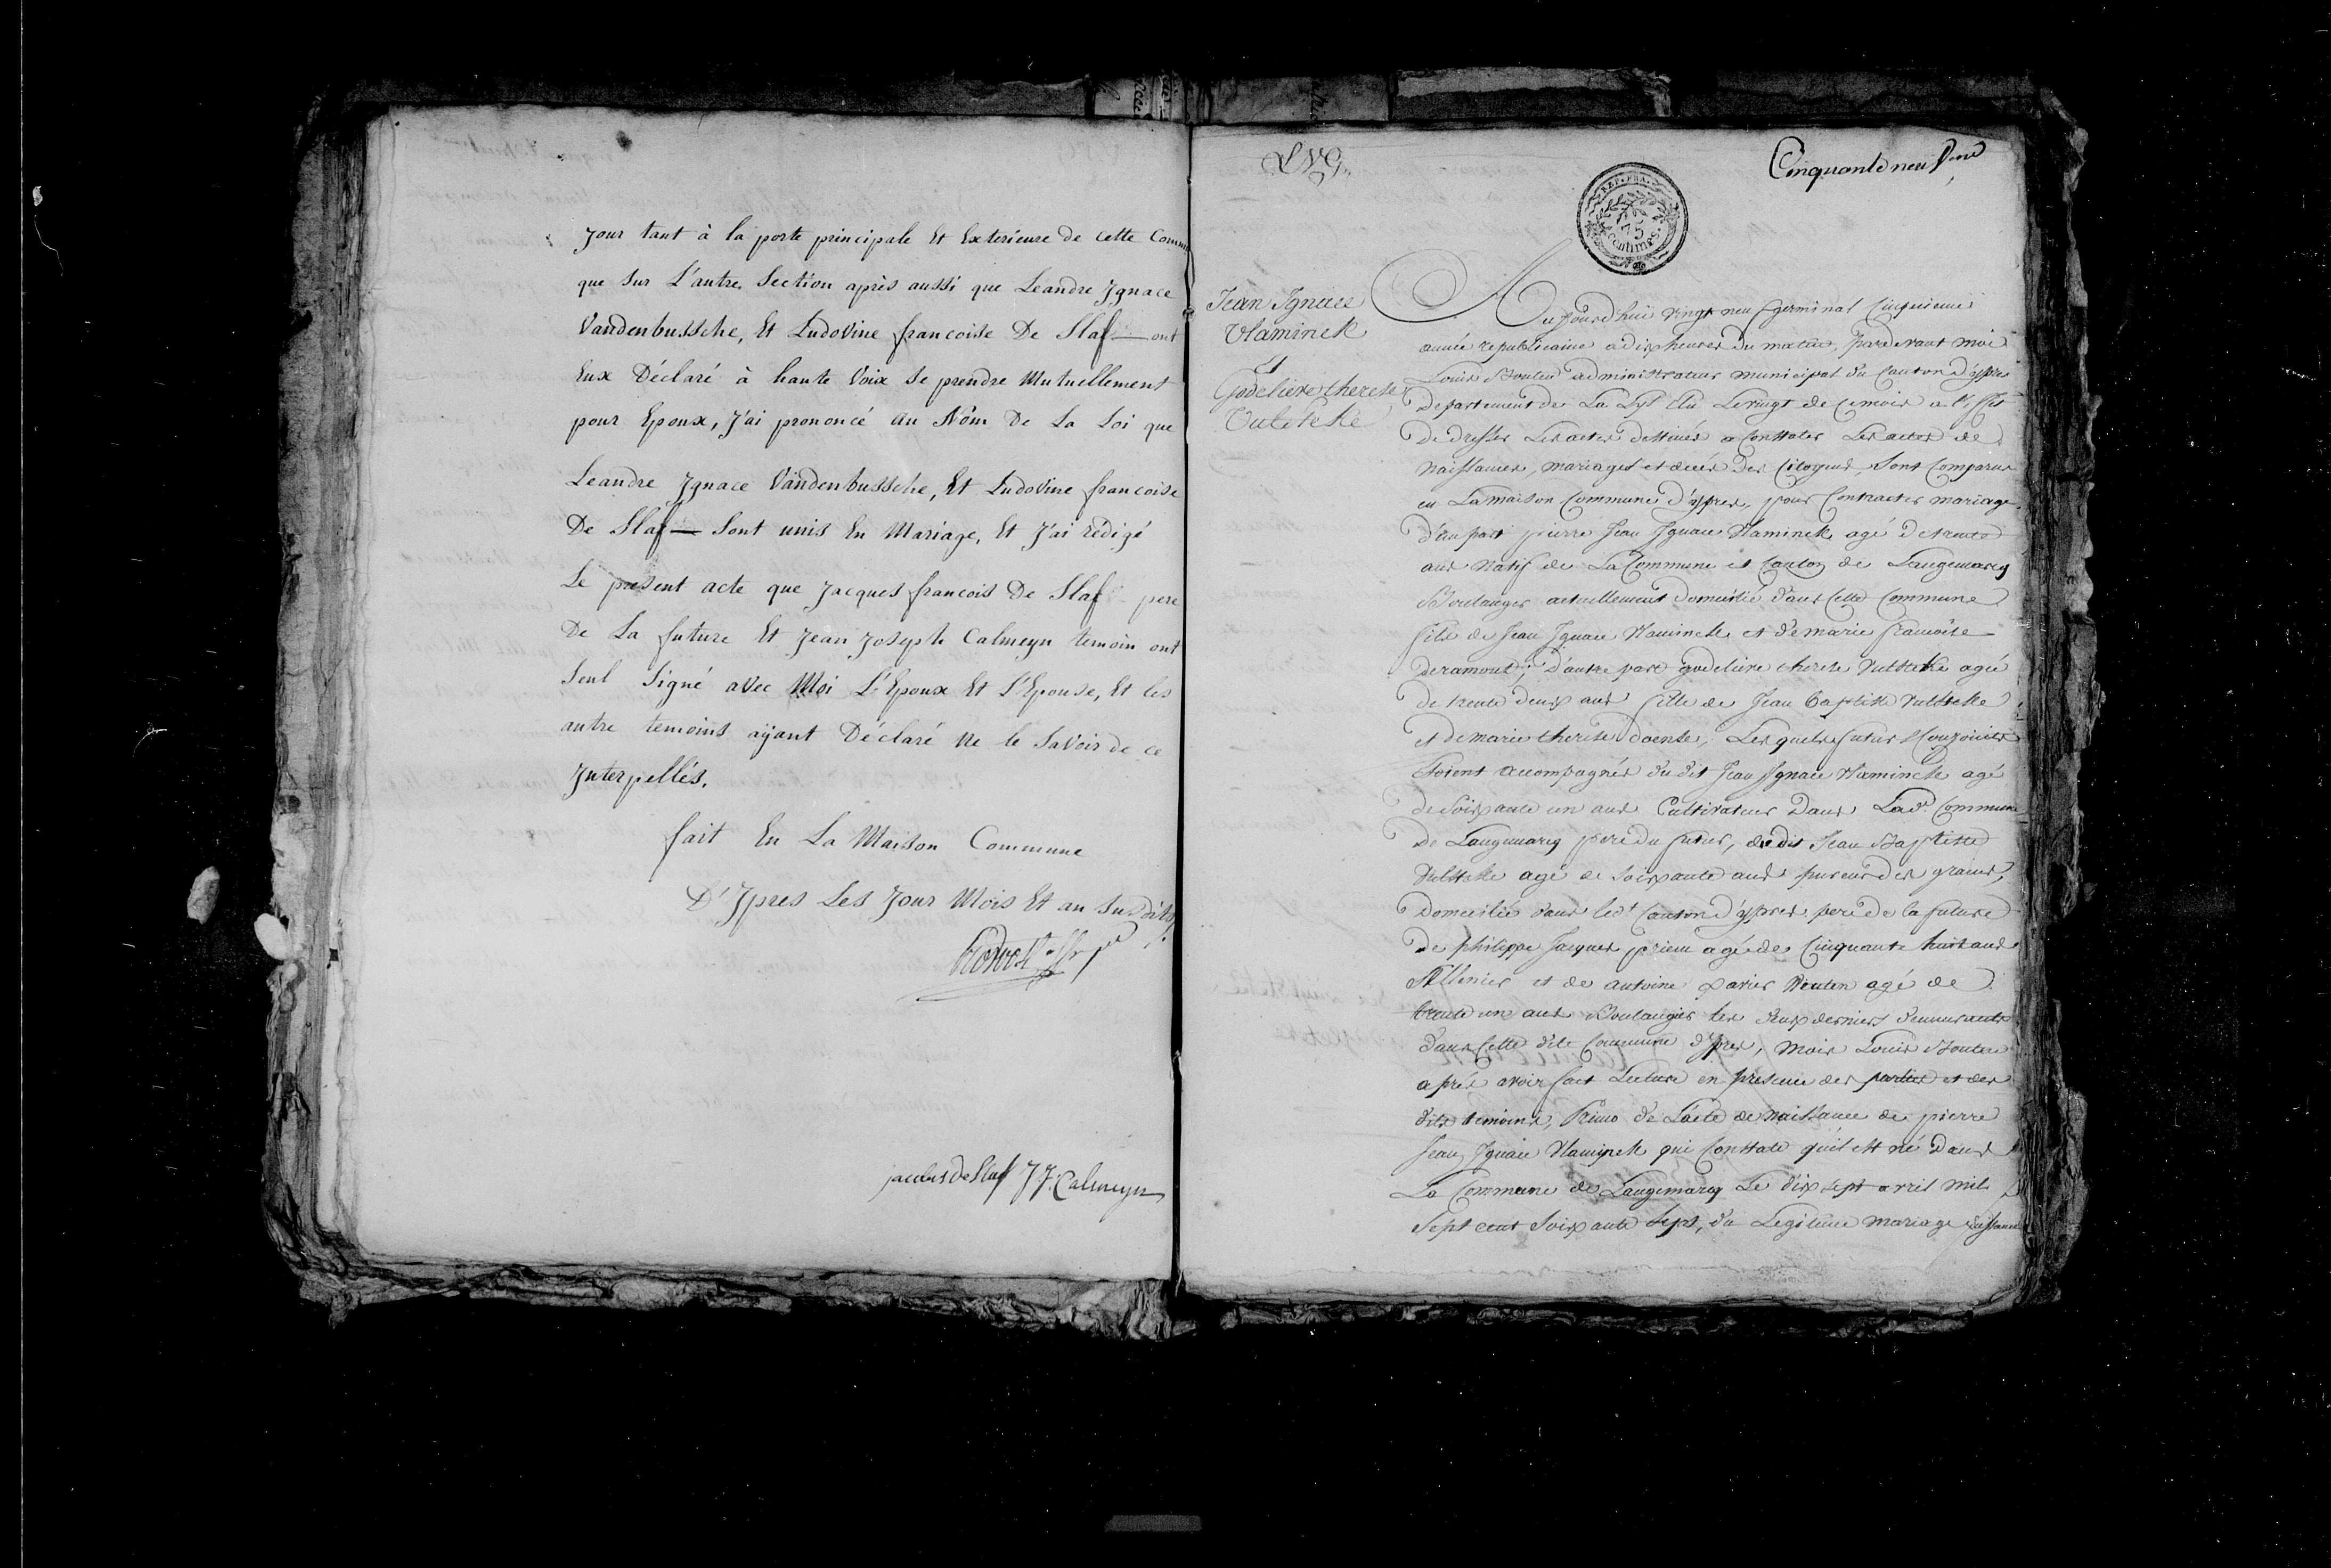 Jour tant à la porte principale Et Exterieure de cette Commu
que sur L'autre Section après aussi que Leandre Ignace
Vandenbussche, Et Ludovine francoise De Slaf — ont
Eux Déclaré à haute Voix se prendre Mutuellement
pour Epoux, J'ai prononcé au Nôm De La Loi que
Leandre Ignace Vandenbussche, Et Ludovine francoise
De Slaf — Sont unis En Mariage, Et J'ai rédigé
Le present acte que Jacques francois De Slaf pere
De La future Et Jean Joseph Calmeyn temoin ont
Seul Signé avec Moi L'Epoux Et L'Epouse, Et les
autre temoins aÿant Déclaré ne le Savoir de ce
Interpellés.
fait En La Maison Commune
D'Ypres Les Jour Mois Et an Susdits
jacobus De Slaf J J. Calmeyn
LVG.
Cinquante neuf
REP. FRA.
75
centimes
Jean Ignace
Vlaminck
et
Godelieve therese
Vulsteke
Aujourd'hui vingt neuf germinal Cinquieme
année republicaine a dix heures du matin, pardevant moi
Louis Bouten administrateur municipal du Canton d'ypres
departement de La Lys Elu Le vingt de ce mois a l'effet
de dresser Les actes destinés a Constater Les actes de
naissances, mariages et decés des Citoyens, Sont Comparus
en La maison Commune d'ypres, pour Contracter mariage
d'un part pierre Jean Ignace Vlaminck agé de trente
ans natif de La Commune et Canton de Langemarcq
Boulanger actuellement domicilié dans Cette Commune
fils de Jean Ignace Vlaminck et de marie francoise
deramout; d'autre part godelieve therese Vulsteke agée
de trente deux ans fille de Jean baptiste Vulsteke
et de marie therese doense; Les quels futurs Conjoints
etoient accompagnés du dit Jean Ignace Vlaminck agé
de Soixante un ans Cultivateur dans Lad.e Commune
de Langemarcq pere du futur, du dit Jean Baptiste
Vulsteke agé de Soixante ans des grains,
Domicilié dans led.t Canton d'ypres pere de la future
de philippe Jacques prieu agé de Cinquante huit ans
et de antoine xavier Wenten agé de
trente un ans Boulangier les deux derniers demeurants
dans Cette dite Commune d'ypres, Moi Louis Bouten
aprés avoir fait Lecture en presence des parties et des
dits temoins, Primo de L'acte de naissance de pierre
Jean Ignace Vlaminck qui Constate qu'il est né dans
La Commune de Langemarcq Le dix sept avril mil
Sept cent Soixante Sept, du Legitime mariage